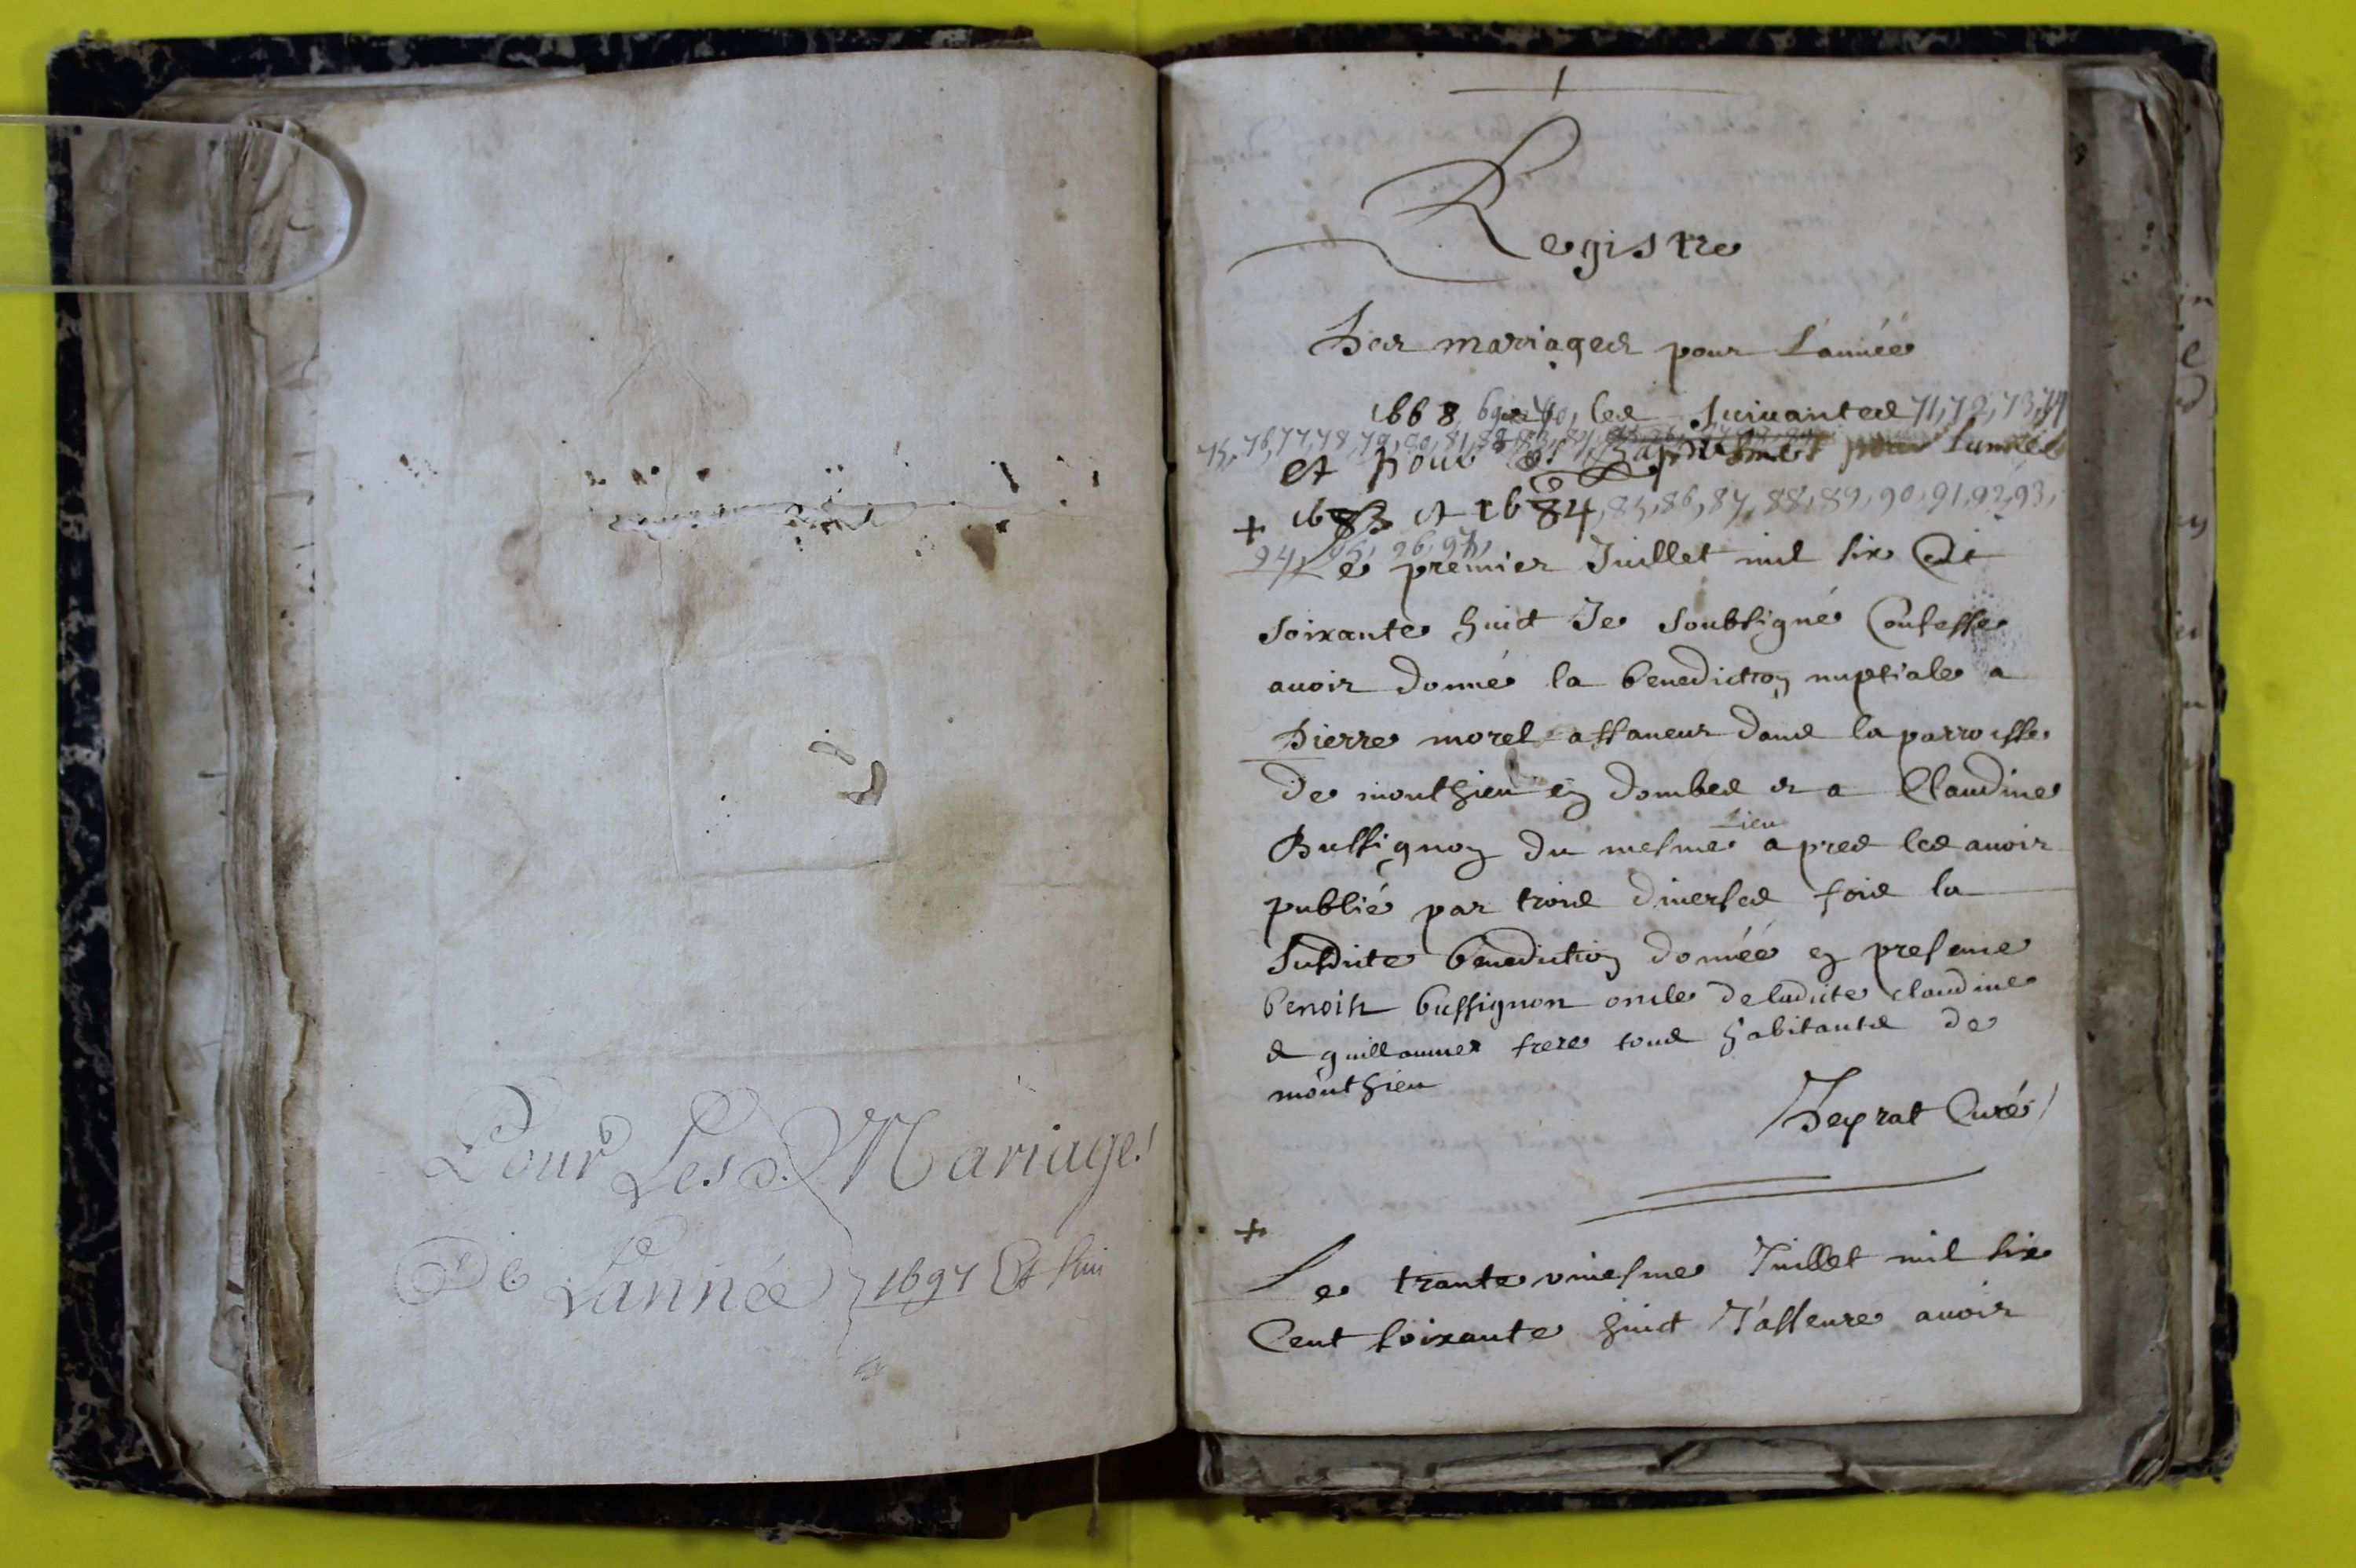 Pour Les Mariage
De Lannée 1697 Et sui
Registre
Des mariages pour L'année
1668, 69, 70, les suivantes 71, 72, 73, 74
75, 76, 77, 78, 79, 80, 81, 82, 83, 84,
et pour les Baptesmes pour Lannée
+ 1683 et 1684, 85, 86, 87, 88, 89, 90, 91, 92, 93,
94, 95, 96, 97,
Le premier Juillet mil six Cent
soixante huict Je soubsigné Confesse
avoir donné la benediction nuptiale a
Pierre morel affaneur dans la parroisse
de monthieu en dombes et a Claudine
Bussignon du mesme lieu apres les avoir
publié par trois diverses fois la
susdite benediction donnée en presence
benoist bussignon oncle de ladicte claudine
& guillaume frere tous habitants de
monthieu
Peyrat Curé
+
Le trante uniesme Juillet mil six
Cent soixante huict J'asseure avoir